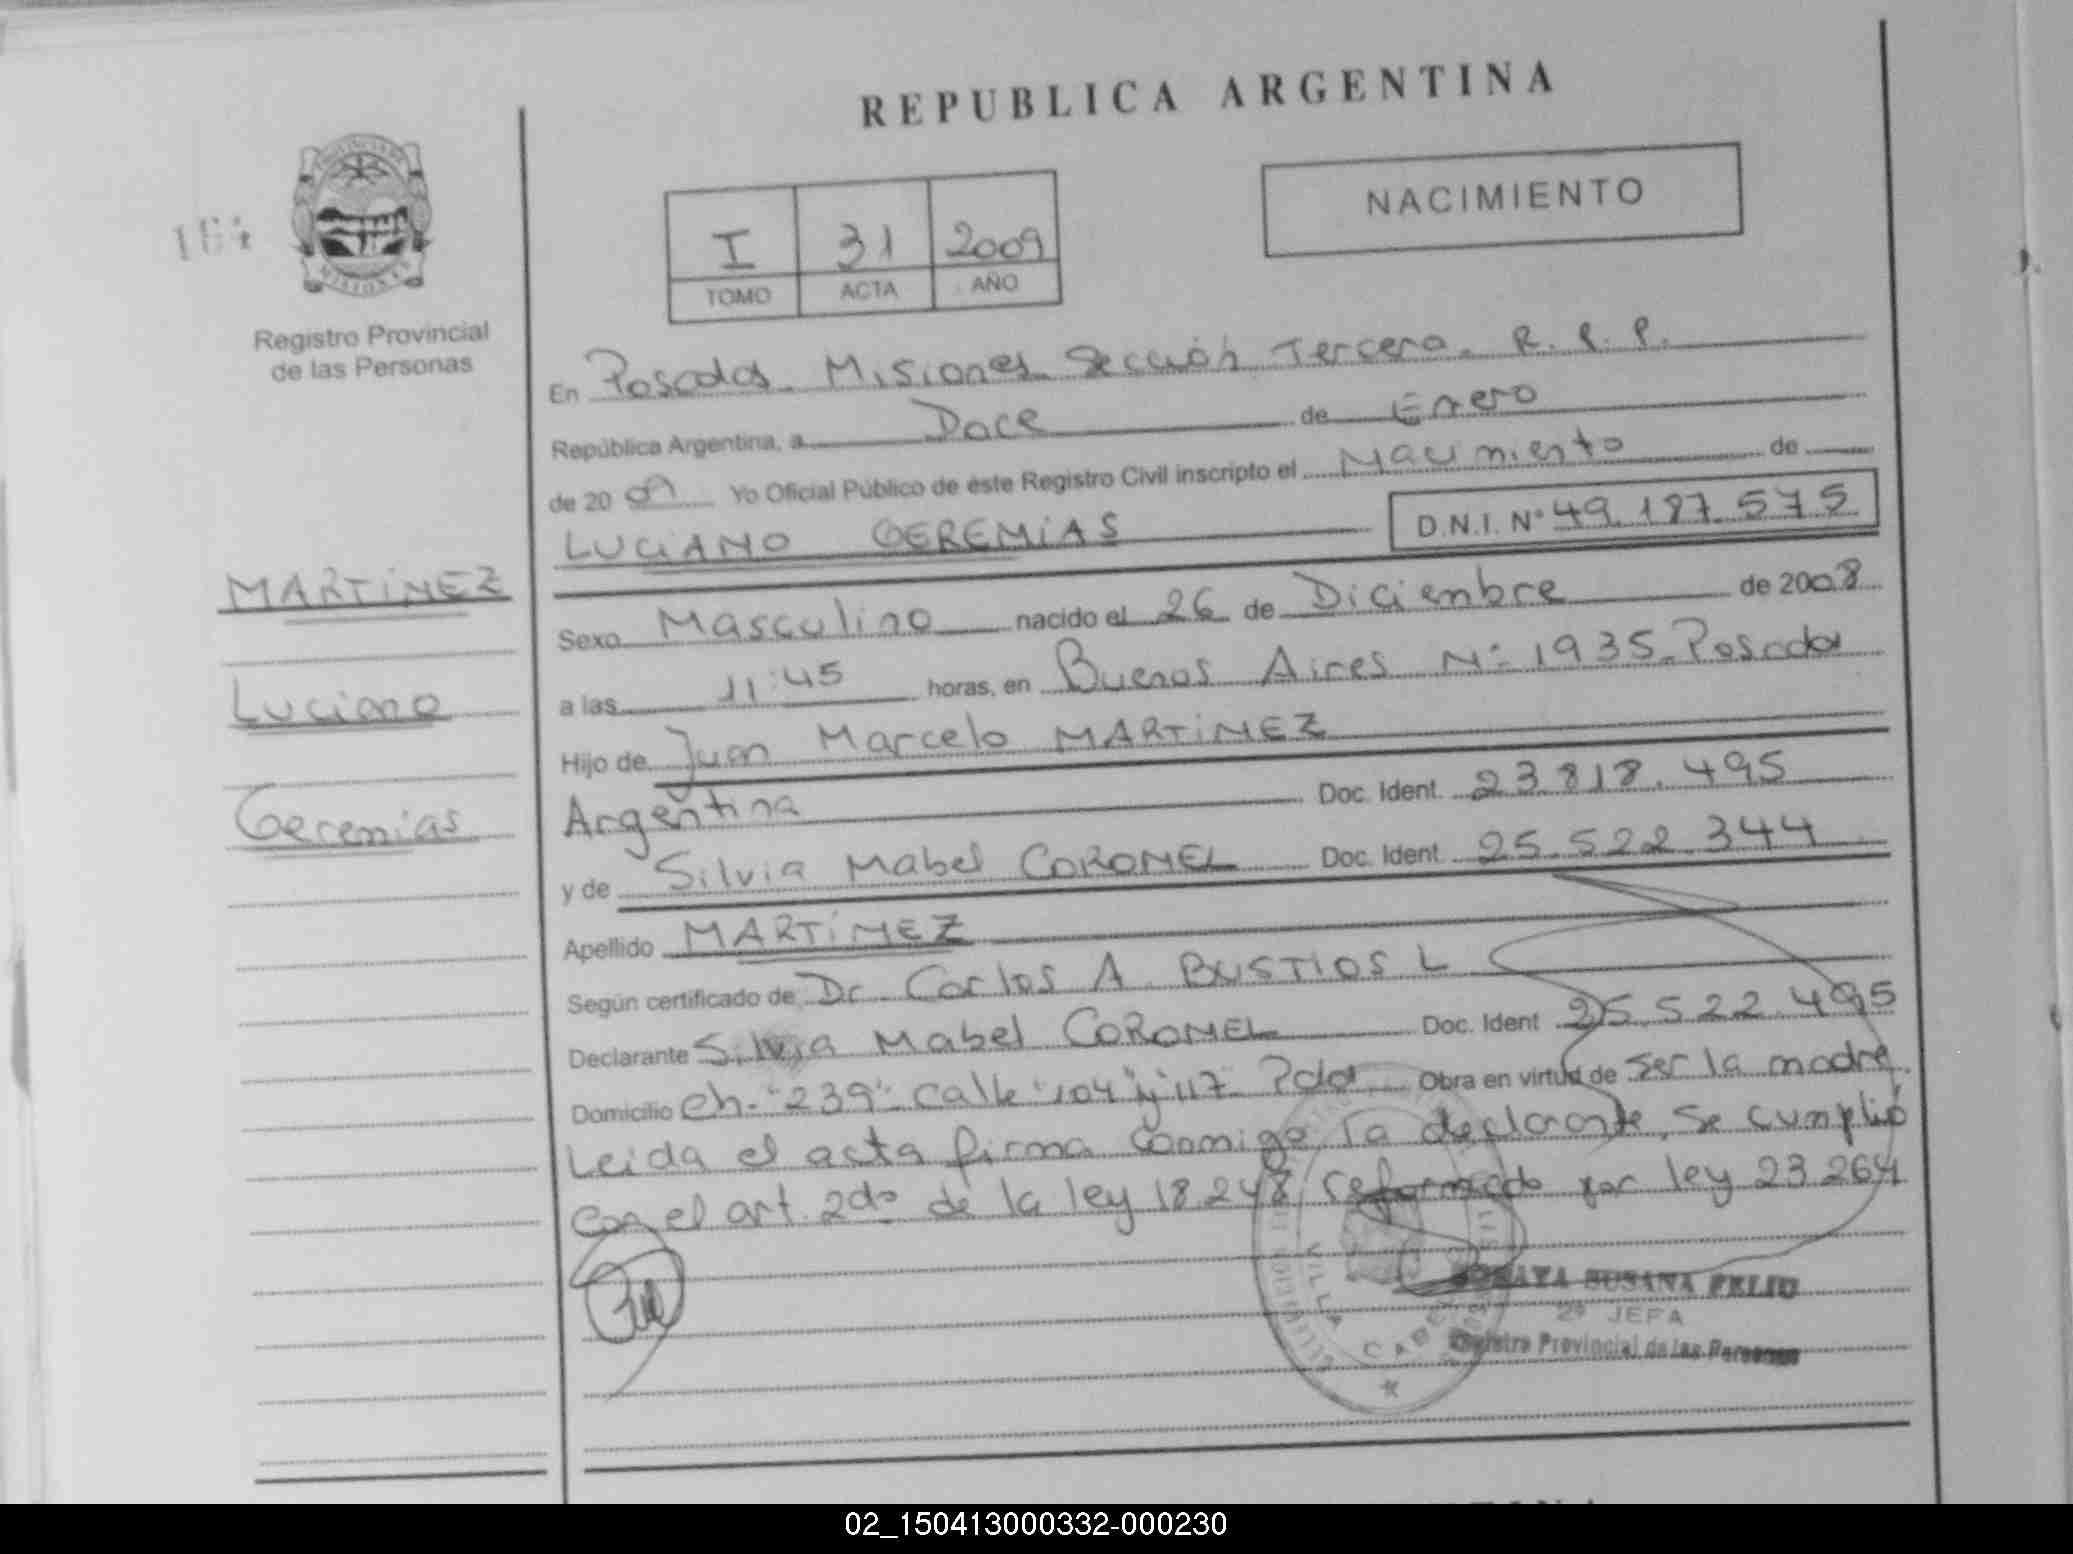 REPUBLICA ARGENTINA
NACIMIENTO
I 31 2009
TOMO ACTA AÑO
Registro Provincial
de las Personas
MARTINEZ
Luciano
Geremias
En Posadas - Misiones - Sección Tercera - R. P. P.
República Argentina, a Doce de Enero
de 20 09 Yo Oficial Público de éste Registro Civil inscripto el Nacimiento de
LUCIANO GEREMIAS D.N.I. Nº 49.187.575
Sexo Masculino nacido el 26 de Diciembre de 2008
a las 11:45 horas, en Buenos Aires Nº 1935 - Posadas
Hijo de Juan Marcelo MARTINEZ
Argentina Doc. Ident. 23.818.495
y de Silvia Mabel CORONEL Doc. Ident. 25.522.344
Apellido MARTINEZ
Según certificado de Dr. Carlos A. BUSTIOS L
Declarante Silvia Mabel CORONEL Doc. Ident 25.522.495
Domicilio Ch. "239" calle "104 y 117" Pdas Obra en virtud de ser la madre.
Leida el acta firma conmigo la declarante, se cumplió
con el art. 2do de la ley 18.248 reformado por ley 23.264
SUSANA FELIU
2º JEFA
Registro Provincial de las Personas
VILLA CABE
02_150413000332-000230